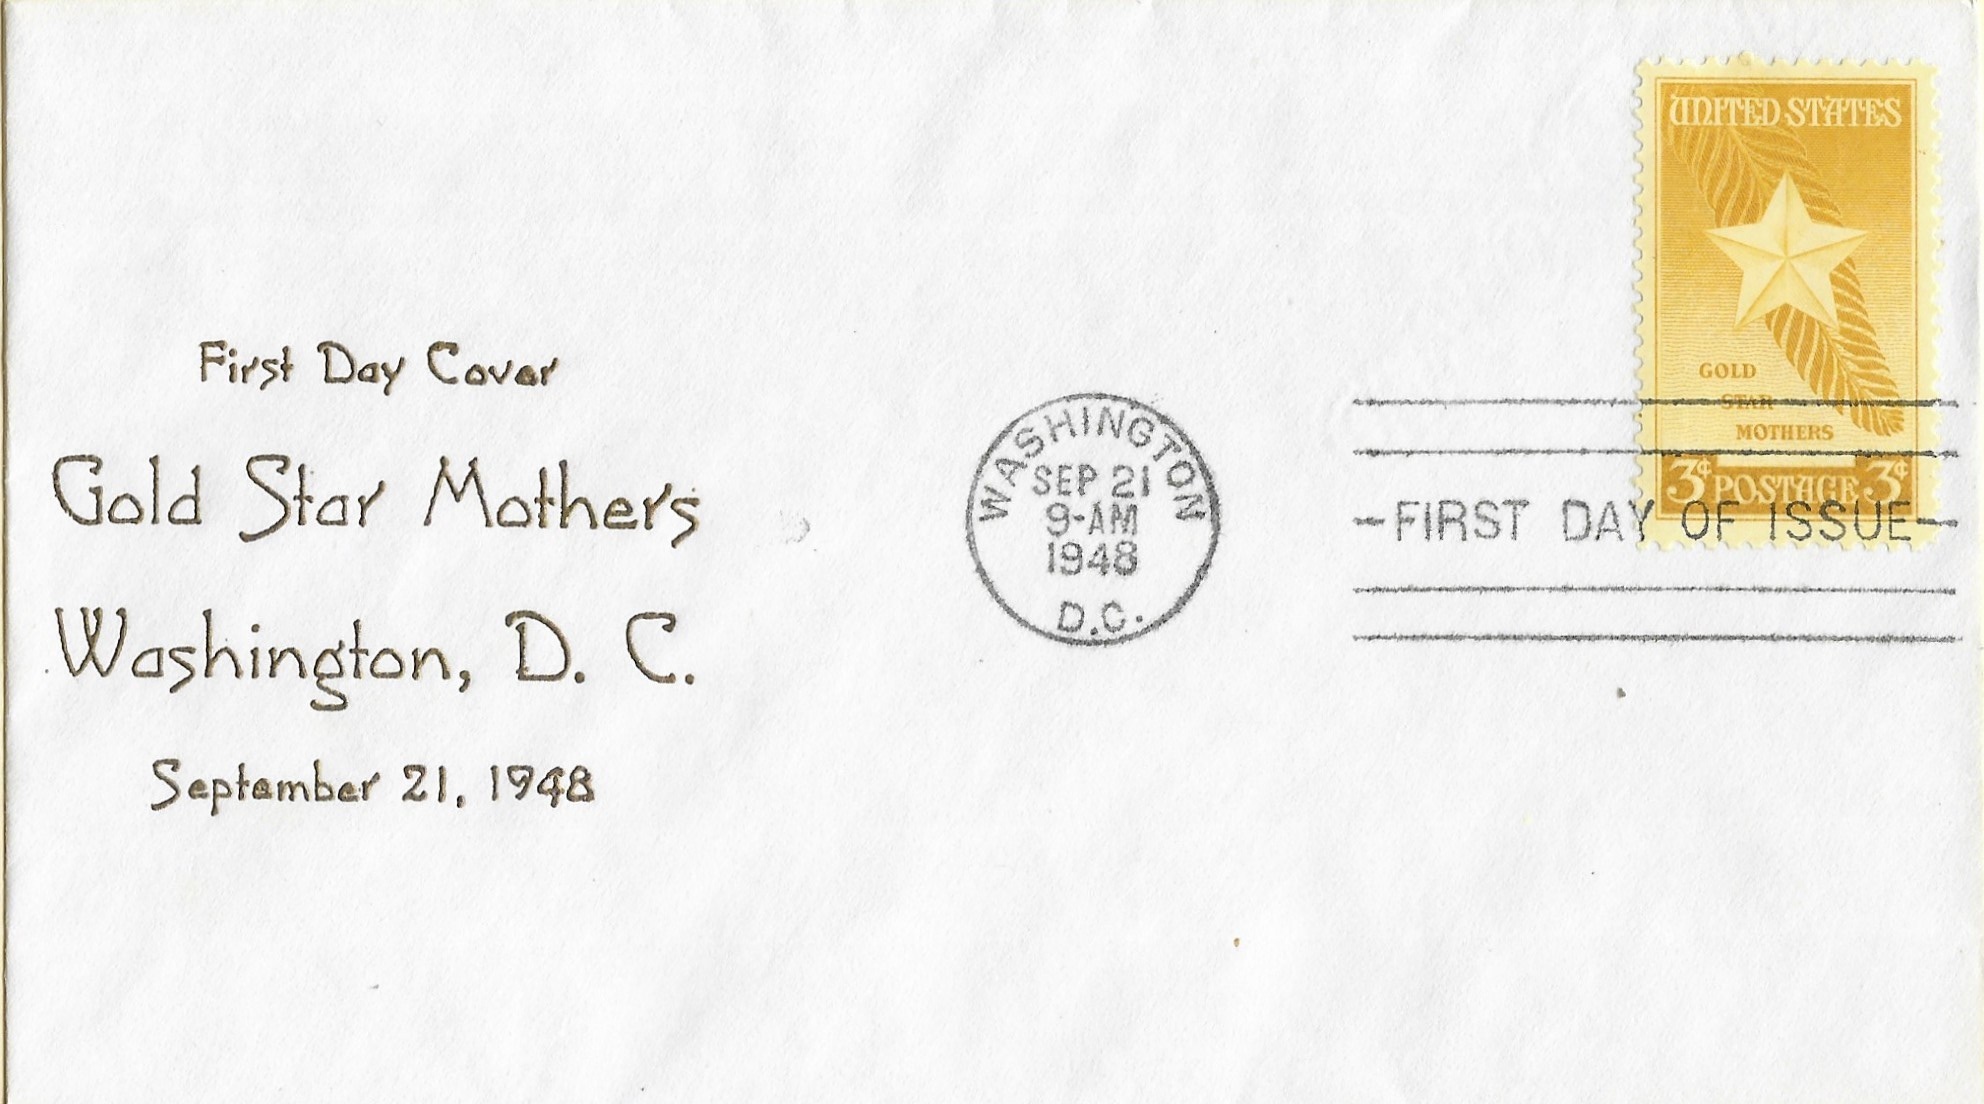 First Day Cover
Gold Star Mothers
Washington, D. C.
September 21, 1948
WASHINGTON
SEP 21
9-AM
1948
D.C.
UNITED STATES
GOLD
STAR
MOTHERS
3¢ POSTAGE 3¢
-FIRST DAY OF ISSUE-